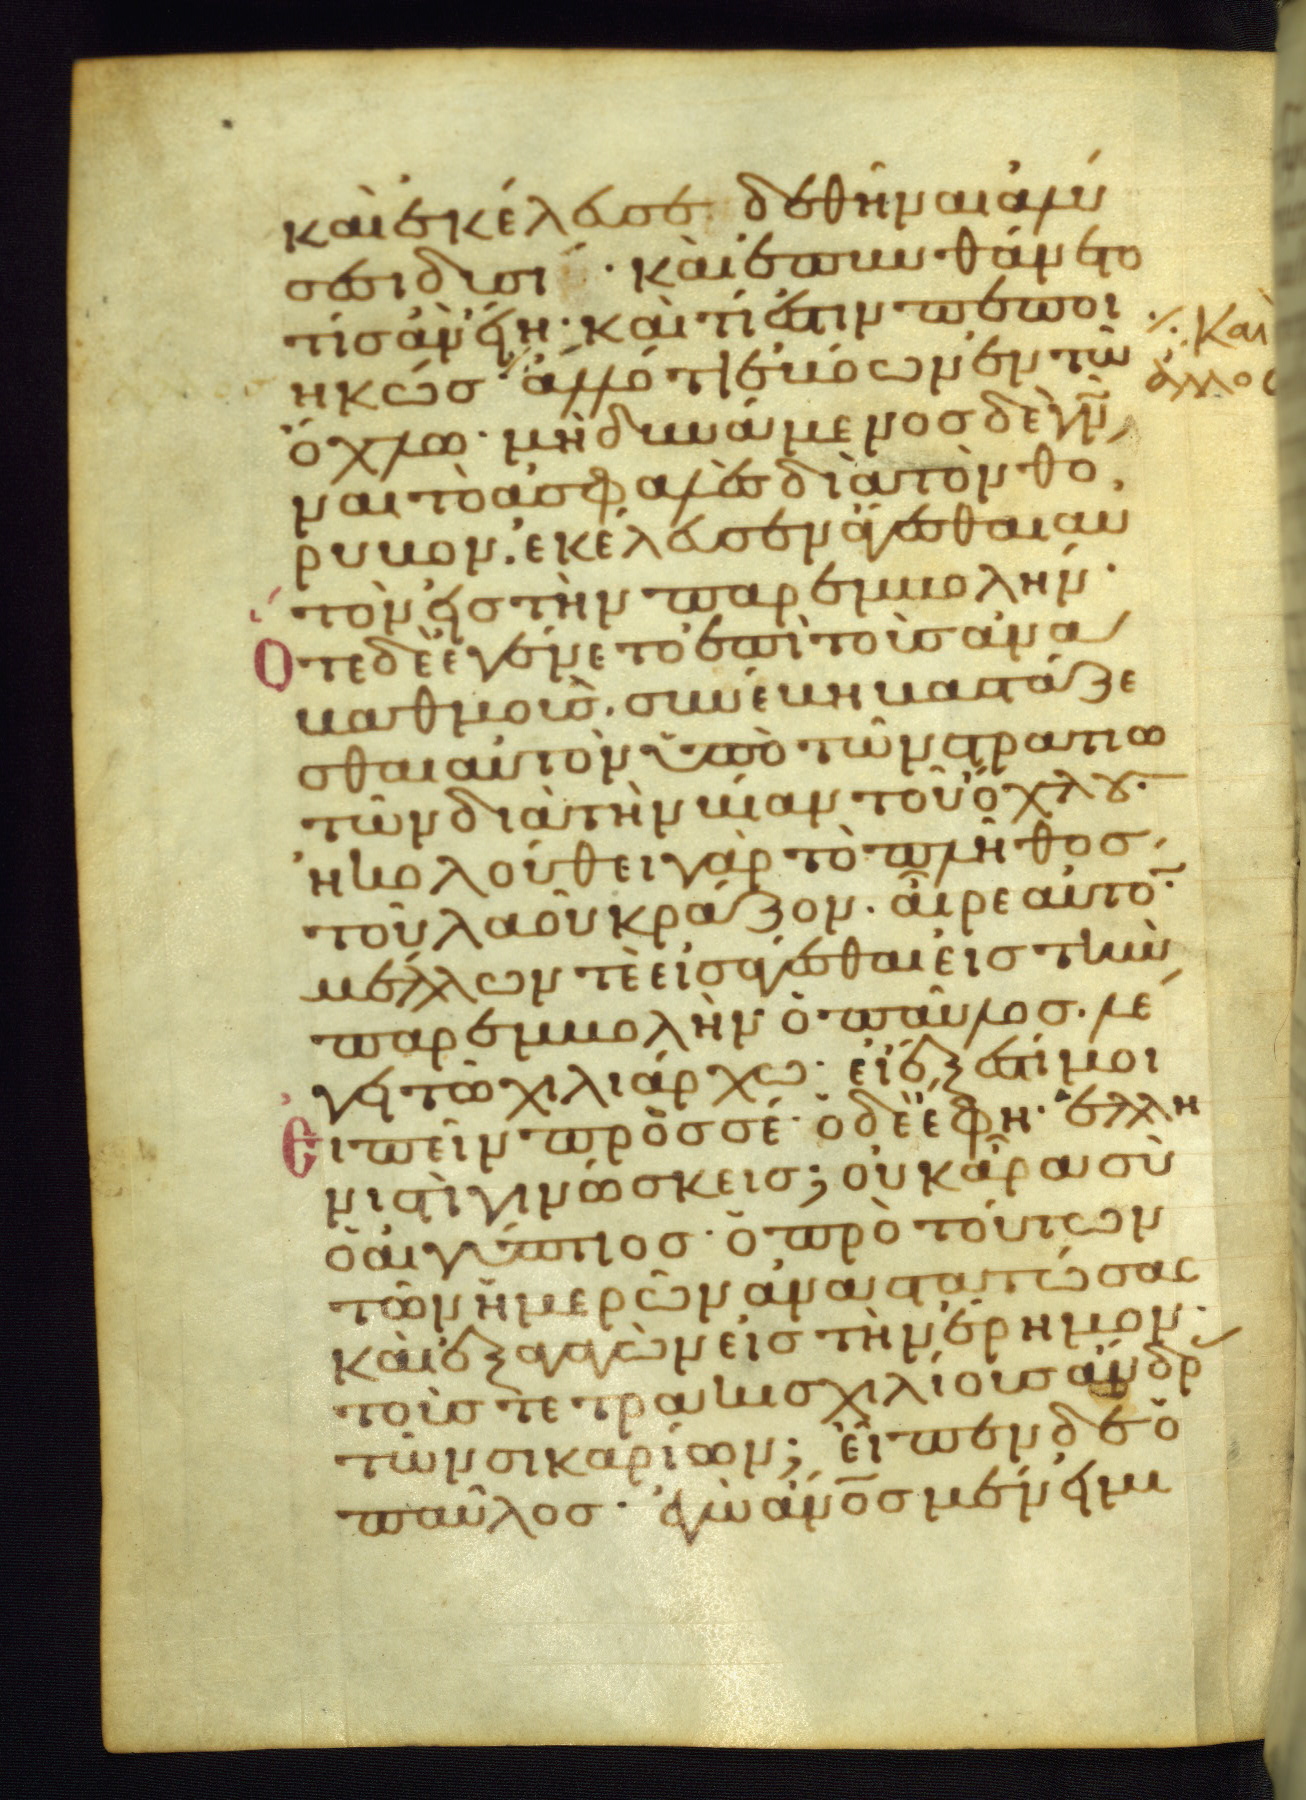 καὶ ἐκέλευσε δεθῆναι ἁλύ
σεσι δυσί · καὶ ἐπυνθάνετο
τίς ἂν εἴη · καὶ τί ἐστιν πεποι
ηκώς · ἄλλό τι ἐβόων ἐν τῶ
ὄχλω · μὴ δυνάμενος δὲ γνῶ
ναι τὸ ἀσφαλὲς διὰ τὸν θό
ρυβον . ἐκέλευσεν ἄγεσθαι αυ
τὸν εἰς τὴν παρεμβολήν ·
Ὅτε δὲ ἐγένετο ἐπὶ τοὺς ἀνα
βαθμούς . συνέβη βαστάζε
σθαι αὐτὸν ὑπὸ τῶν στρατιω
τῶν διὰ τὴν βίαν τοῦ ὄχλου ·
ἠκολούθει γὰρ τὸ πλῆθος
τοῦ λαοῦ κράζον . αἶρε αὐτὸν ·
μέλλων τὲ εἰσάγεσθαι εἰς τὴν
παρεμβολὴν ὁ παῦλος . λέ
γει τῶ χιλιάρχω · εἰ ἔξεστί μοι
Εἰπεῖν πρὸς σέ · ὁ δὲ ἔφη · ἑλλη
νιστὶ γινώσκεις ; οὐκ ἄρα σὺ
ὁ αἰγύπτιος · ὁ πρὸ τούτων
τῶν ἡμερῶν ἀναστατώσας
καὶ ἐξαγαγὼν εἰς τὴν ἔρημον ·
τοὺς τετρακισχιλίους ἄνδρ
τῶν σικαρίων ; εἶπεν δε ὁ
παῦλος · ἐγὼ ἄνος μέν εἰμι
Καὶ
ἄλλος